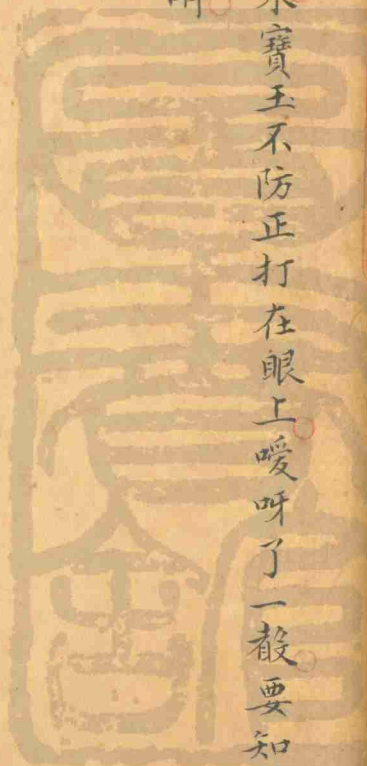 來寶玉不防正打在眼上噯呀了一聲要知